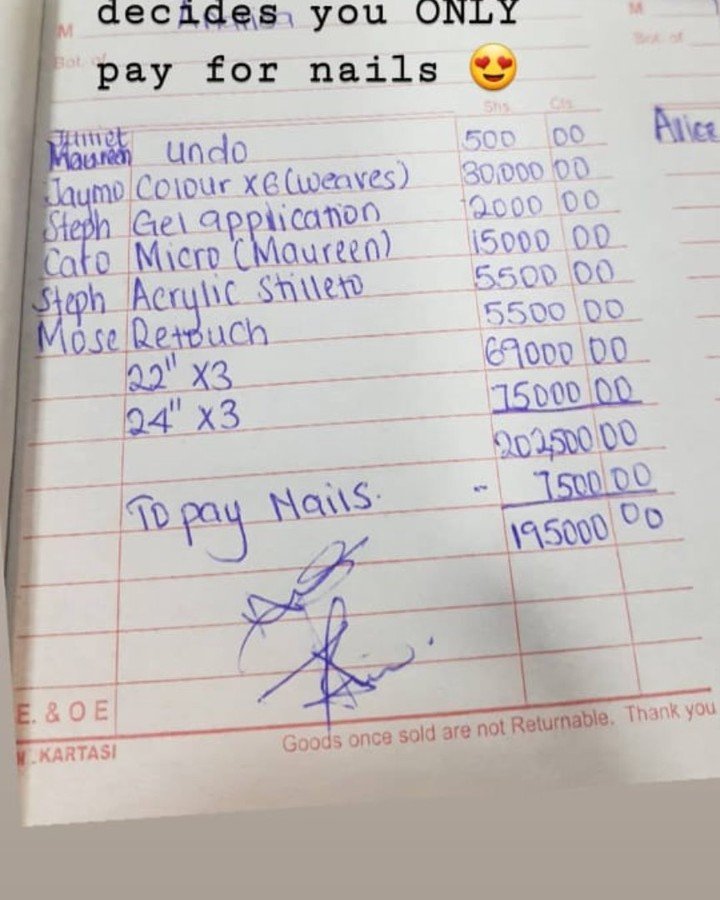 decides you ONLY
pay for nails 😍
M
M
Bot. of
Bot. of
Shs. Cts.
Maureen undo 500 00
Alice
Jaymo Colour x6 (weaves) 30,000 00
Steph Gel application 2000 00
Cato Micro (Maureen) 15000 00
Steph Acrylic Stilleto 5500 00
Mose Retouch 5500 00
22" X3 69000 00
24" X3 75000 00
202,500 00
To pay Nails. - 7500 00
195000 00
E. & O E
KARTASI
Goods once sold are not Returnable. Thank you